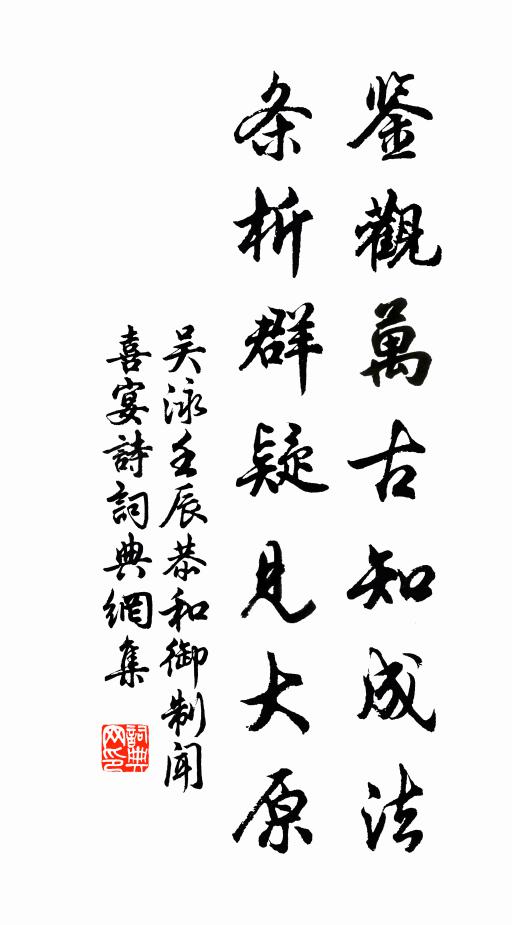 鉴觀萬古知成法
条析群疑見大原
吴泳壬辰恭和御制闻
喜宴詩詞典網集
詞典网印